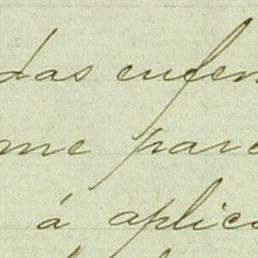 das enfer
me pare
á aplica